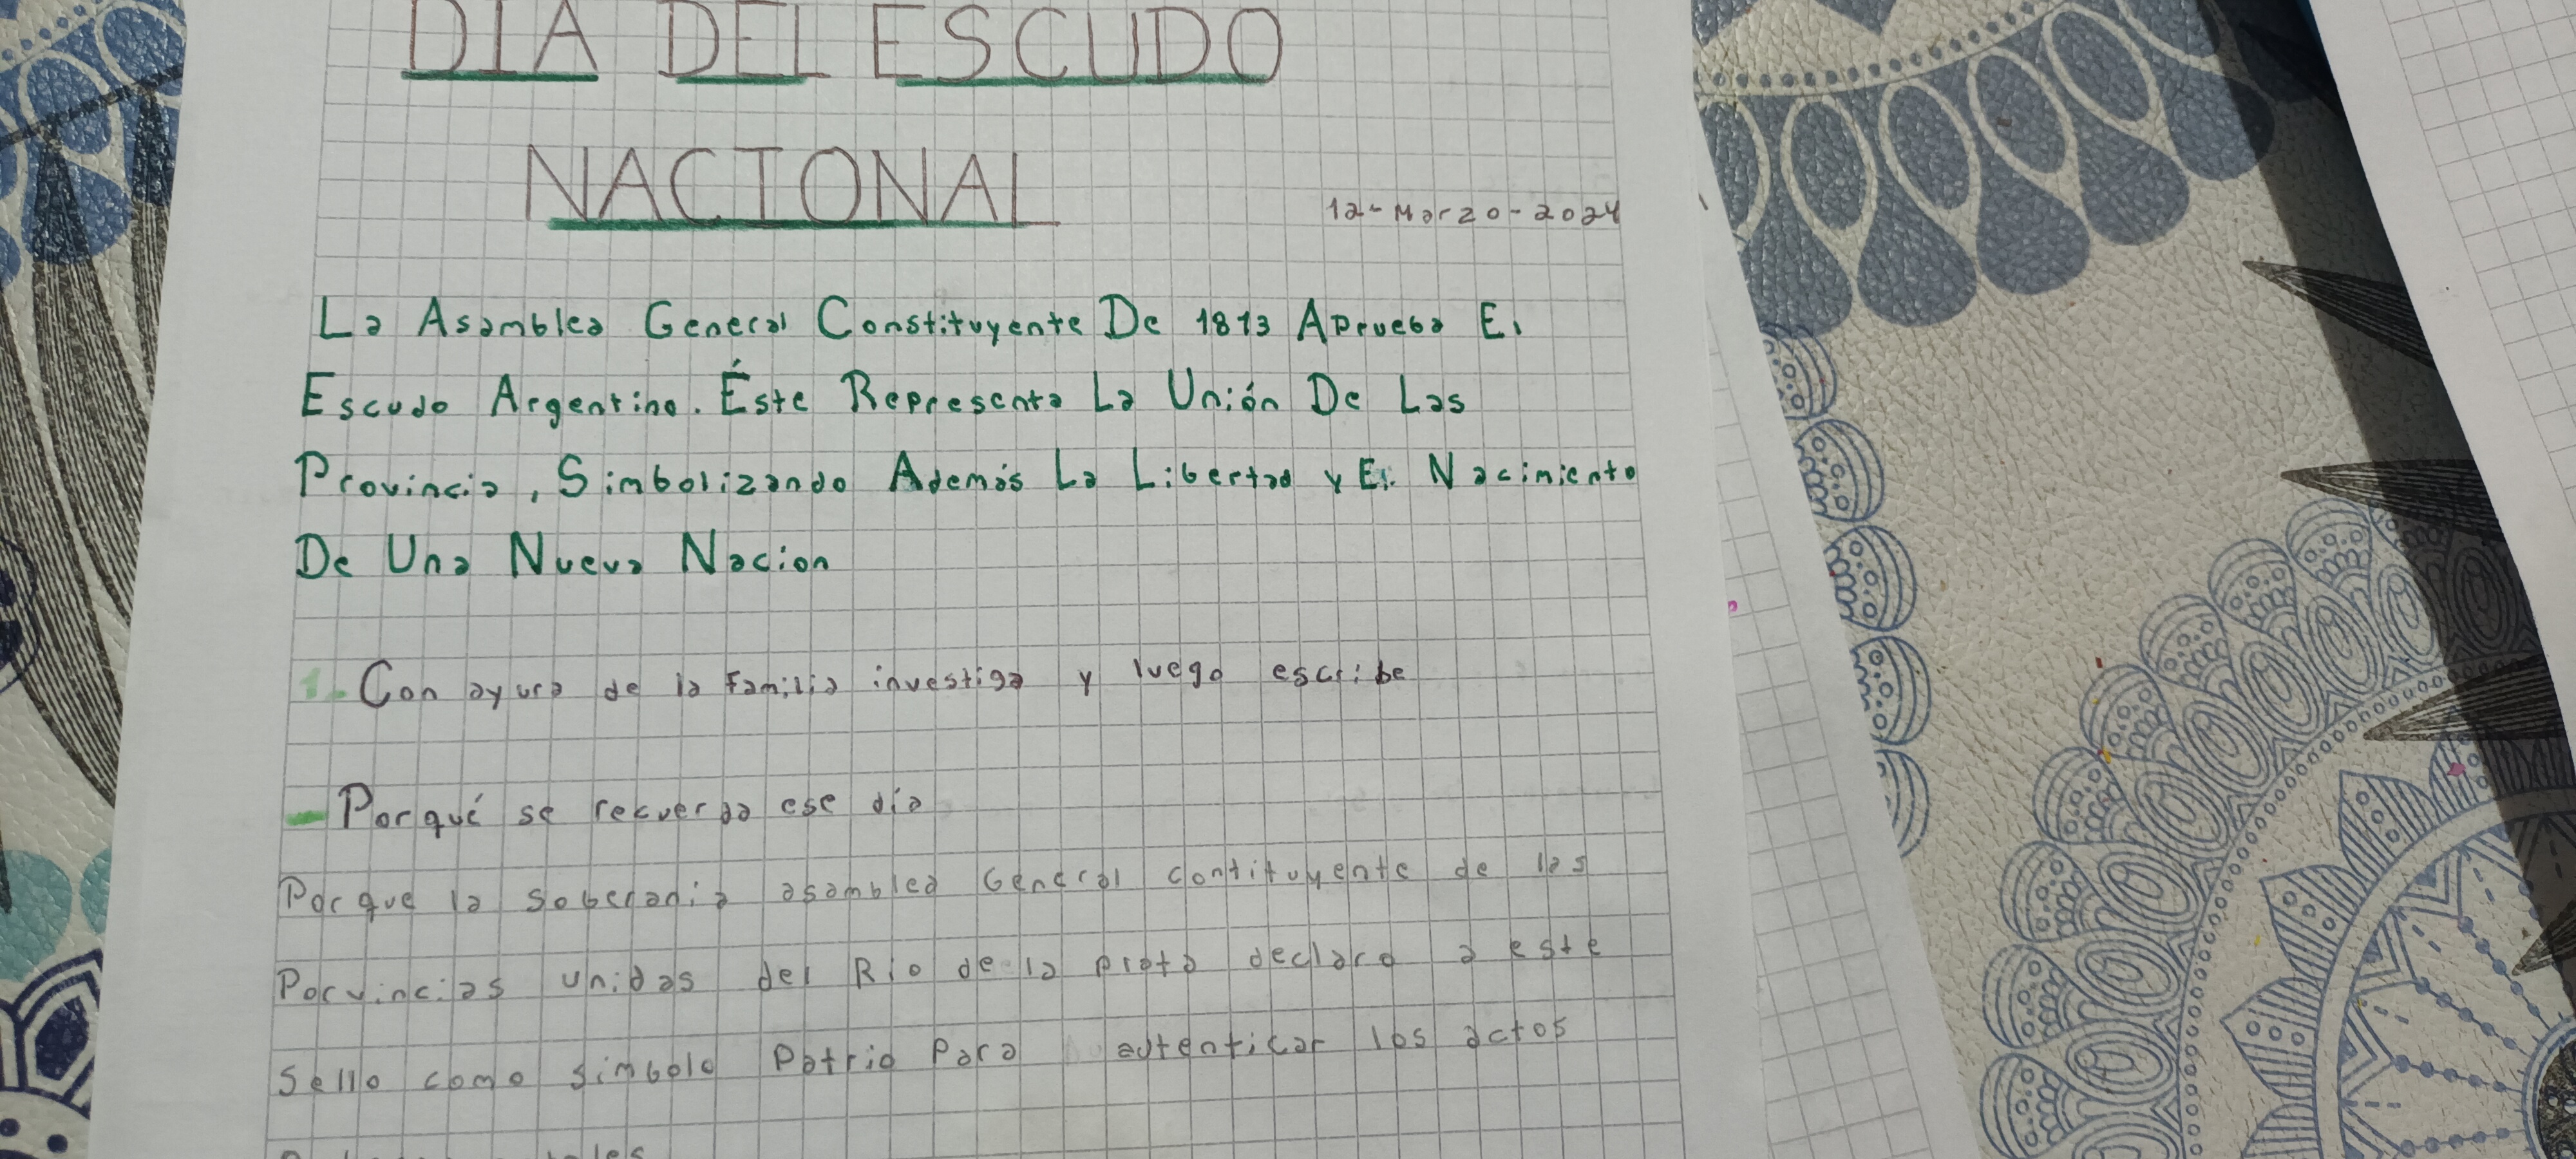 DIA DEL ESCUDO
NACIONAL
12-Marzo-2024
La Asamblea General Constituyente De 1813 Aprueba El
Escudo Argentino. Éste Representa La Unión De Las
Provincia, Simbolizando Además La Libertad y El Nacimiento
De Una Nueva Nacion
1- Con ayura de la Familia investiga y luego escribe
- Porqué se recuerda ese día
Porque la soberania asamblea General contituyente de las
Porvincias unidas del Rio de la plata declaro a este
Sello como simbolo Patrio Para autenticar los actos